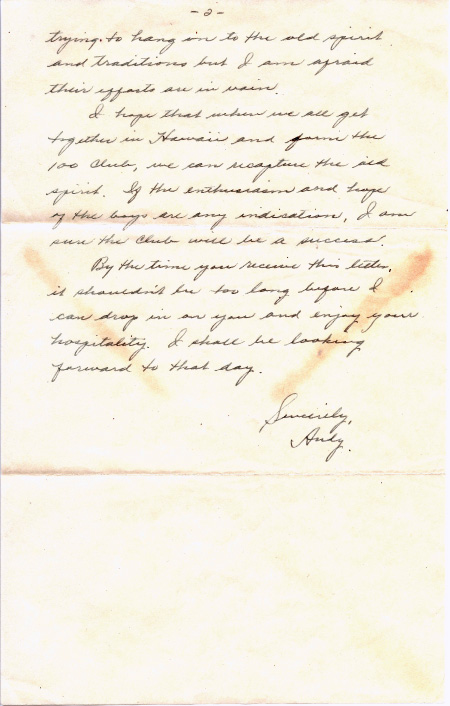 - 2 -
trying to hang on to the old spirit
and traditions but I am afraid
their efforts are in vain.
I hope that when we all get
together in Hawaii and form the
100 Club, we can recapture the old
spirit. If the enthusiasm and hope
of the boys are any indication, I am
sure the Club will be a success.
By the time you receive this letter,
it shouldn't be too long before I
can drop in on you and enjoy your
hospitality. I shall be looking
forward to that day.
Sincerely,
Andy.